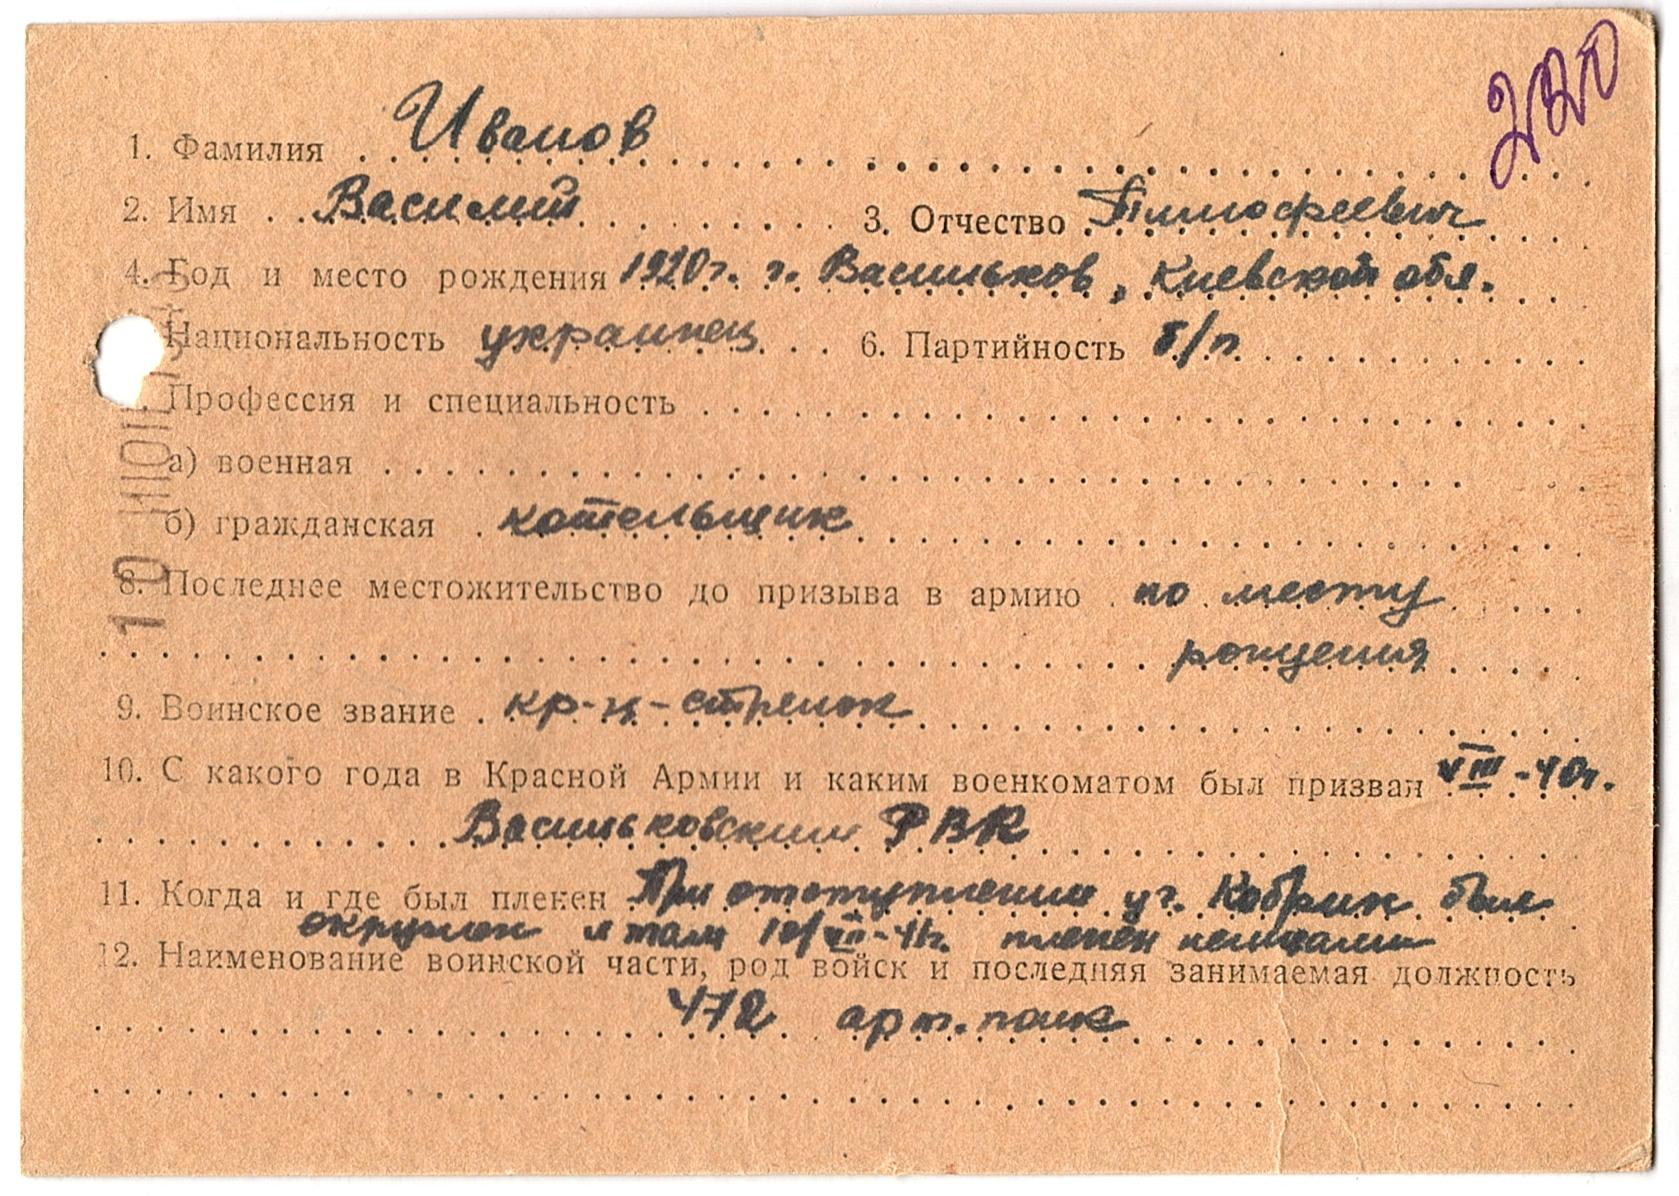 220
1. Фамилия Иванов
2. Имя Василий 3. Отчество Тимофеевич
4. Год и место рождения 1920г. г. Васильков, Киевской обл.
Национальность украинец 6. Партийность б/п
Профессия и специальность
а) военная
б) гражданская котельщик
8. Последнее местожительство до призыва в армию по месту
рождения
9. Воинское звание кр-ц-стрелок
10. С какого года в Красной Армии и каким военкоматом был призван VIII-40г.
Васильковским РВК
11. Когда и где был пленен При отступлении у г. Кобрин был
окружен и там 10/VII-41г. пленен немцами
12. Наименование воинской части, род войск и последняя занимаемая должность
472 арт. полк
10 ИЮЛ